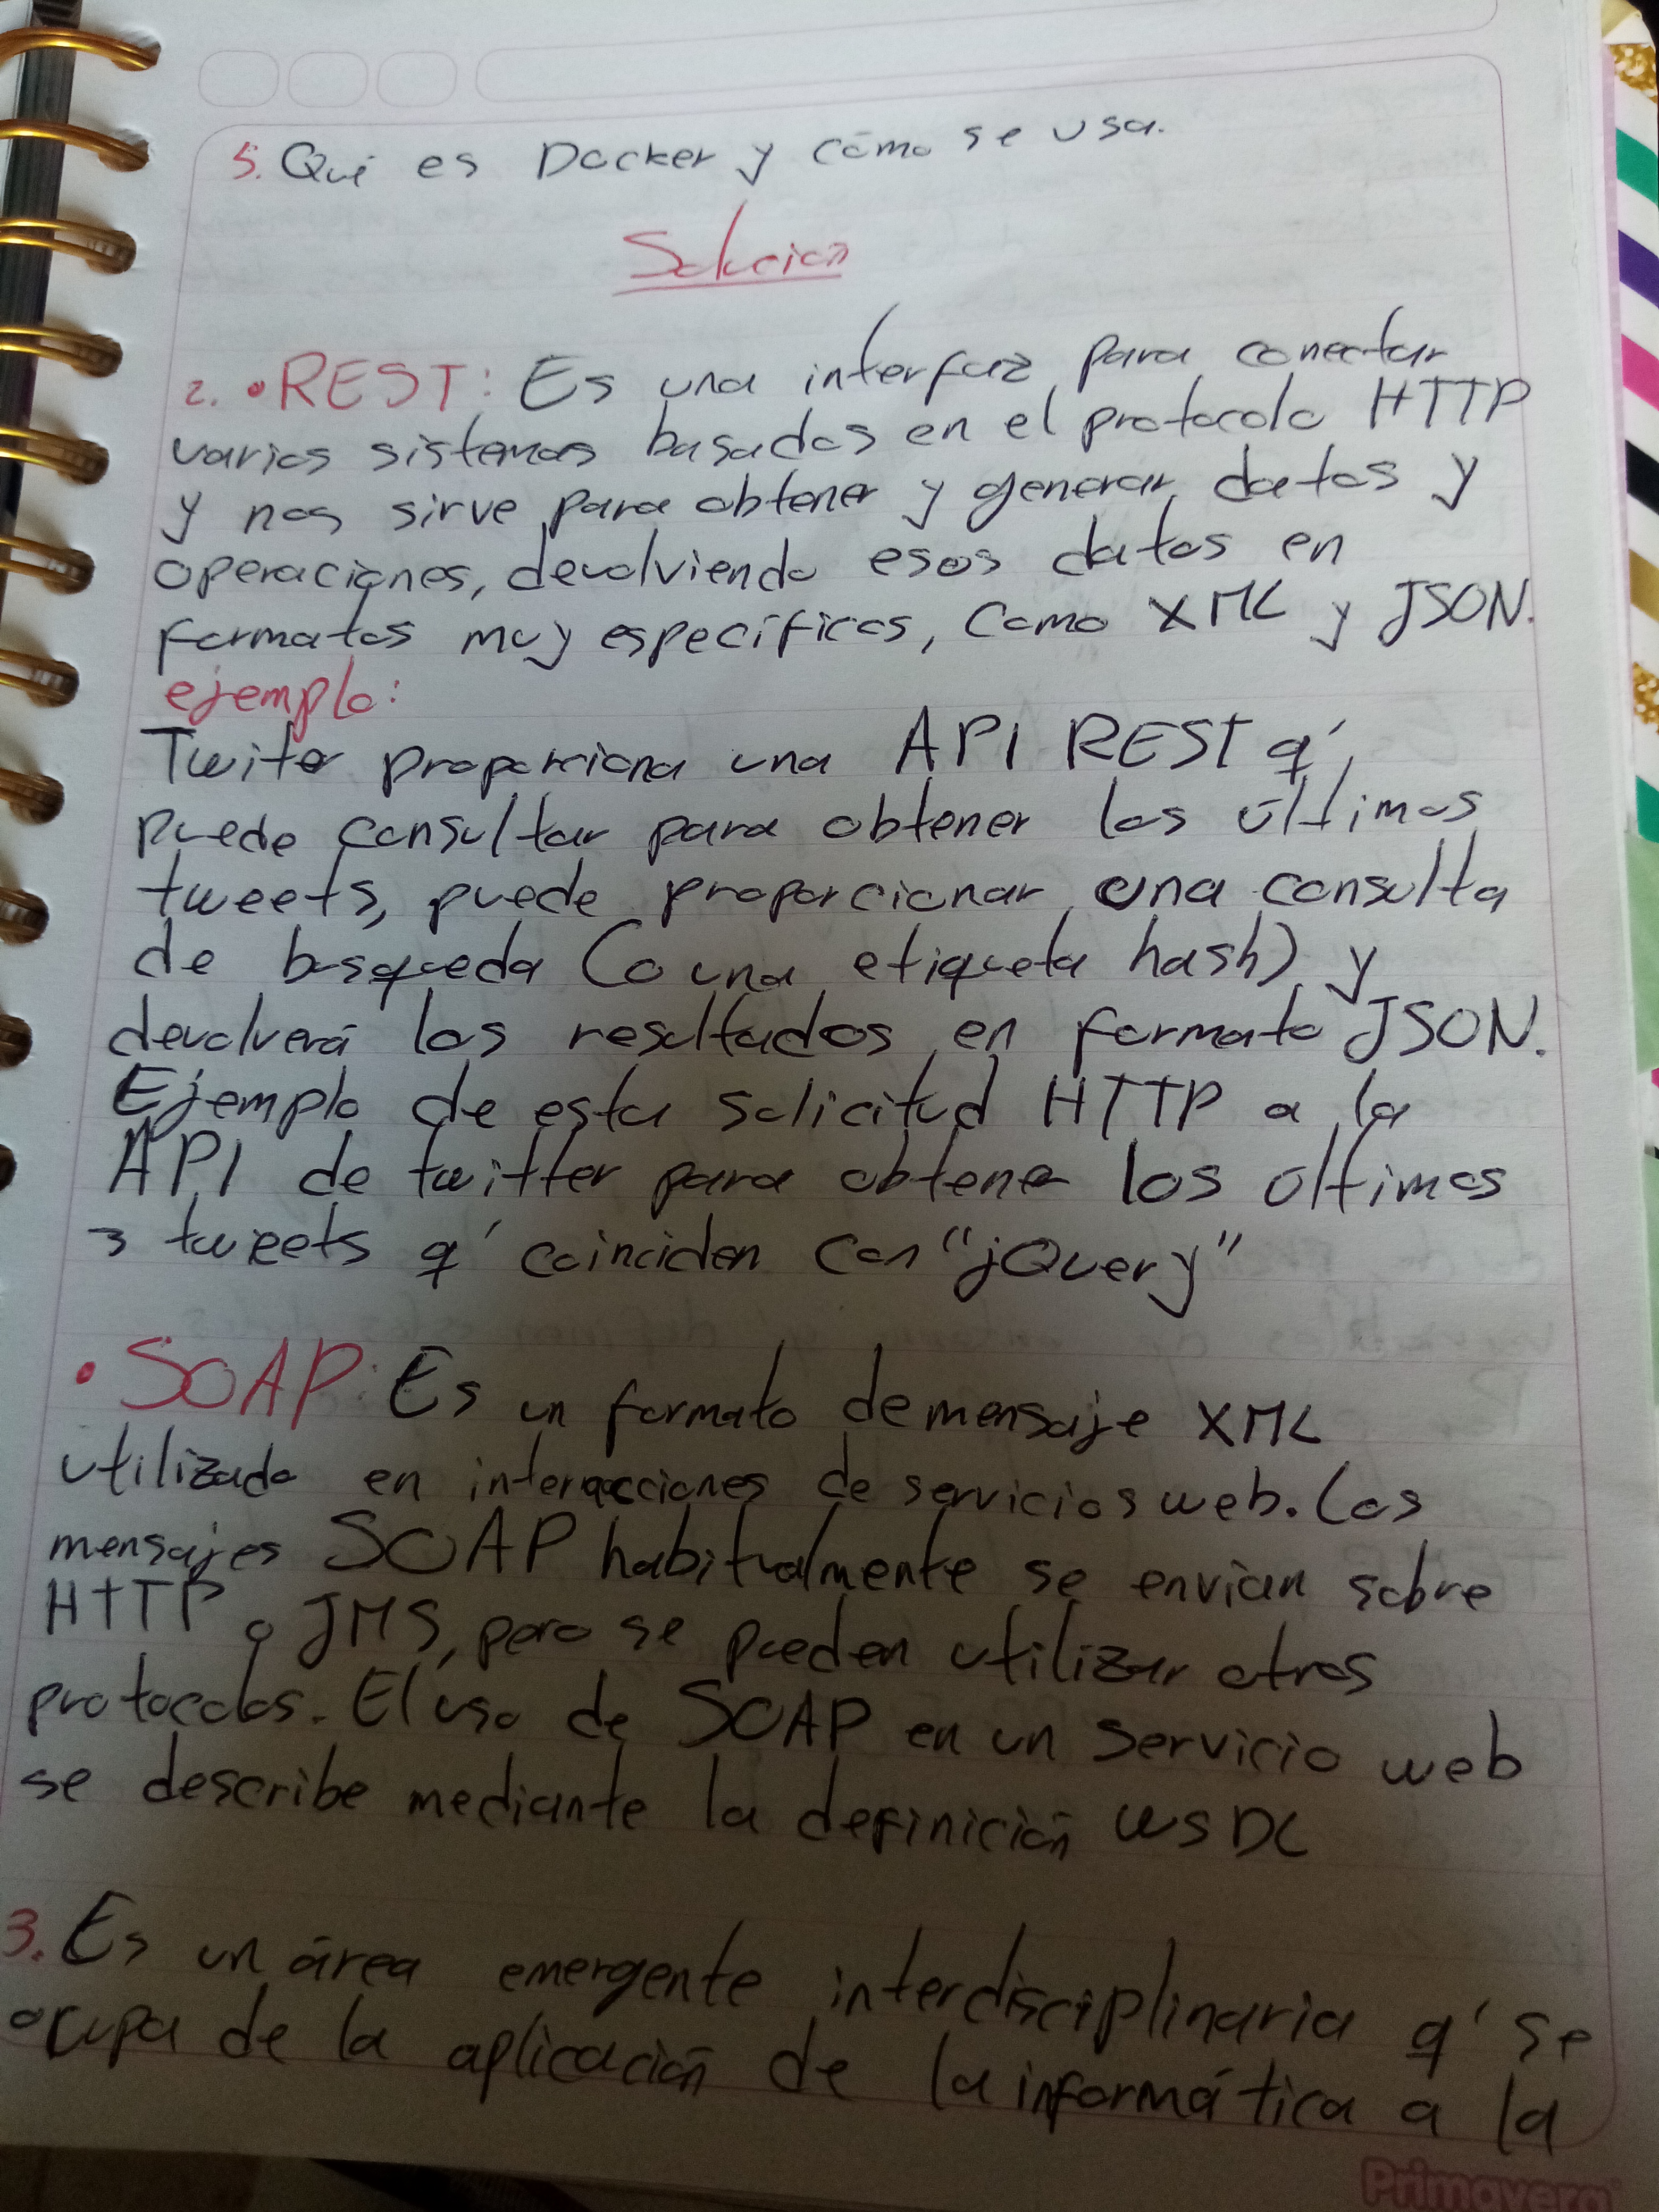 5. Qué es Docker y cómo se usa.
Solución
2. • REST: Es una interfaz para conectar
varios sistemas basados en el protocolo HTTP
y nos sirve para obtener y generar datos y
operaciones, devolviendo esos datos en
formatos muy específicos, Como XML y JSON.
ejemplo:
Twiter proporciona una API REST q'
puede consultar para obtener los últimos
tweets, puede proporcionar una consulta
de busqueda (o una etiqueta hash) y
devolverá los resultados en formato JSON.
Ejemplo de esta solicitud HTTP a la
API de twitter para obtener los ultimos
3 tweets q' coinciden con "jQuery"
• SOAP: Es un formato de mensaje XML
utilizado en interacciones de servicios web. Los
mensajes SOAP habitualmente se envian sobre
HTTP o JMS, pero se pueden utilizar otros
protocolos. El uso de SOAP en un servicio web
se describe mediante la definición WSDL
3. Es un área emergente interdisciplinaria q' se
ocupa de la aplicación de la informática a la
Primavera